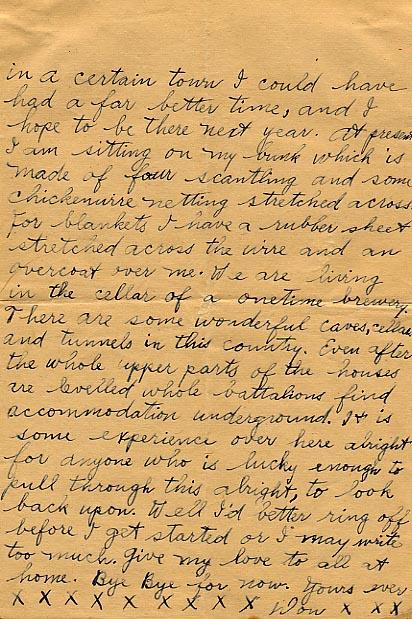 in a certain town I could have
had a far better time, and I
hope to be there next year. At present
I am sitting on my bunk which is
made of four scantling and some
chickenwire netting stretched across
For blankets I have a rubber sheet
stretched across the wire and an
overcoat over me. We are living
in the cellar of a onetime brewery.
There are some wonderful caves, cellars
and tunnels in this country. Even after
the whole upper parts of the houses
are levelled whole battalions find
accommodation underground. It is
some experience over here alright
for anyone who is lucky enough to
pull through this alright, to look
back upon. Well I'd better ring off
before I get started or I may write
too much. Give my love to all at
home. Bye Bye for now. Yours ever
X X X X X X X X X X Won X X X